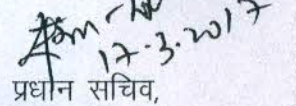 17.3.2017
प्रधान सचिव,